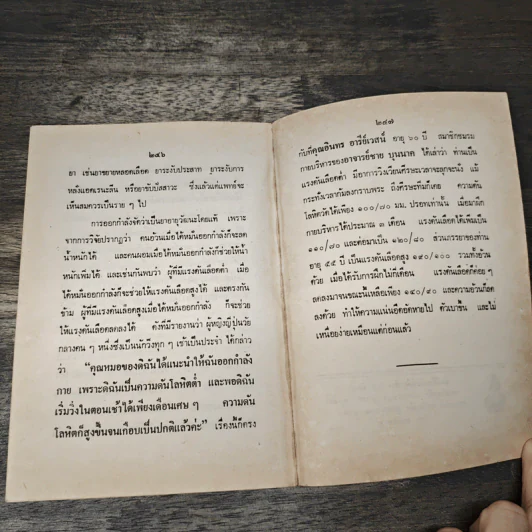 ๒๔๖
ยา เช่นยาขยายหลอดเลือด ยาระงับประสาท ยาระงับการ
หลั่งแอดเรนะลีน หรือยาขับปัสสาวะ ซึ่งแล้วแต่แพทย์จะ
เห็นสมควรเป็นราย ๆ ไป
การออกกำลังจัดว่าเป็นยาอายุวัฒนะโดยแท้ เพราะ
จากการวิจัยปรากฏว่า คนอ้วนเมื่อได้หมั่นออกกำลังก็จะลด
น้ำหนักได้ และคนผอมเมื่อได้หมั่นออกกำลังก็ช่วยให้น้ำ
หนักเพิ่มได้ และเช่นกันพบว่า ผู้ที่มีแรงดันเลือดต่ำ เมื่อ
ได้หมั่นออกกำลังก็จะช่วยให้แรงดันเลือดสูงได้ และตรงกัน
ข้าม ผู้ที่มีแรงดันเลือดสูงเมื่อได้หมั่นออกกำลัง ก็จะช่วย
ให้แรงดันเลือดลดลงได้ ดังที่มีรายงานว่า ผู้หญิงญี่ปุ่นวัย
กลางคน ๆ หนึ่งซึ่งเป็นนักวิ่งทุก ๆ เช้าเป็นประจำ ได้กล่าว
ว่า “คุณหมอของดิฉันได้แนะนำให้ฉันออกกำลัง
กาย เพราะดิฉันเป็นความดันโลหิตต่ำ และพอดิฉัน
เริ่มวิ่งในตอนเช้าได้เพียงเดือนเศษ ๆ ความดัน
โลหิตก็สูงขึ้นจนเกือบเป็นปกติแล้วค่ะ” เรื่องนี้ก็ตรง
๒๔๗
กับที่คุณอินทร อารีย์เวสน์ อายุ ๖๐ ปี สมาชิกชมรม
กายบริหารของอาจารย์ชาย บุนนาค ได้เล่าว่า ท่านเป็น
แรงดันเลือดต่ำ มีอาการวิงเวียนศีรษะเวลาจะลุกจะนั่ง แม้
กระทั่งเวลาก้มลงกราบพระ ถึงศีรษะทิ่มก็เคย ความดัน
โลหิตวัดได้เพียง ๑๐๐/๗๐ มม. ปรอทเท่านั้น เมื่อมาฝึก
กายบริหารได้ประมาณ ๓ เดือน แรงดันเลือดได้เพิ่มเป็น
๑๑๐/๗๐ และต่อมาเป็น ๑๒๐/๘๐ ส่วนภรรยาของท่าน
อายุ ๕๕ ปี เป็นแรงดันเลือดสูง ๑๕๐/๑๐๐ รวมทั้งอ้วน
ด้วย เมื่อได้รับการฝึกไม่กี่เดือน แรงดันเลือดก็ค่อย ๆ
ลดลงมาจนขณะนี้เหลือเพียง ๑๔๐/๙๐ และความอ้วนก็ลด
ลงด้วย ทำให้ความแน่นอึดอัดหายไป ตัวเบาขึ้น และไม่
เหนื่อยง่ายเหมือนแต่ก่อนแล้ว